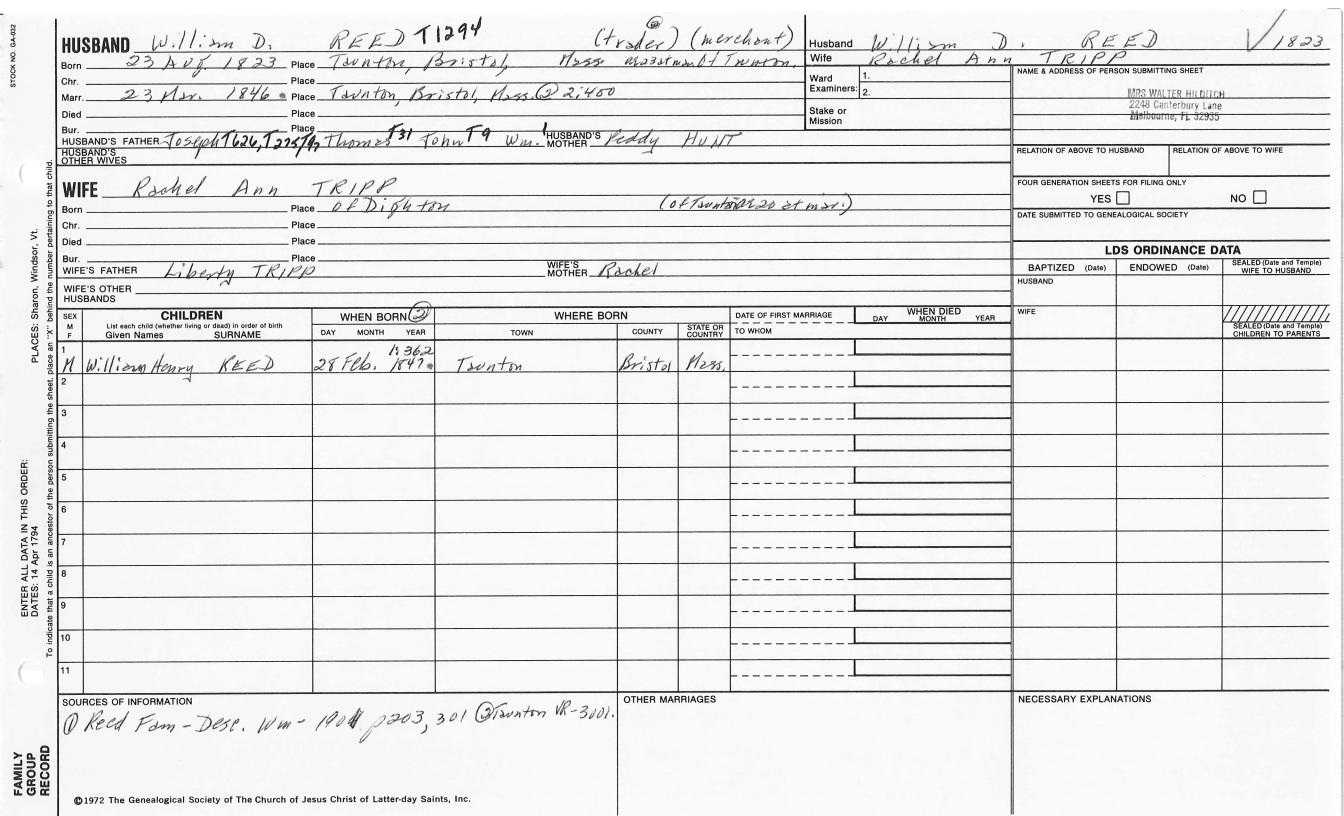 STOCK NO. GA-032
HUSBAND William D. REED T1294 (trader) (merchant)
Born 23 Aug 1823 Place Taunton, Bristol, Mass
Chr. Place
Marr. 23 Mar. 1846 Place Taunton, Bristol, Mass. ② 2:400
Died Place
Bur. Place
HUSBAND'S FATHER Joseph T626, Thomas T31 John T9 Wm. 1 HUSBAND'S MOTHER Peddy HUNT
HUSBAND'S OTHER WIVES
WIFE Rachel Ann TRIPP
Born Place of Dighton (of Taunton 20 at mar.)
Chr. Place
Died Place
Bur. Place
WIFE'S FATHER Liberty TRIPP WIFE'S MOTHER Rachel
WIFE'S OTHER HUSBANDS
Husband William D. REED √ 1823
Wife Rachel Ann TRIPP
Ward Examiners: 1.
2.
Stake or Mission
NAME & ADDRESS OF PERSON SUBMITTING SHEET
MRS WALTER HILDITCH
2248 Canterbury Lane
Melbourne, FL 32935
RELATION OF ABOVE TO HUSBAND RELATION OF ABOVE TO WIFE
FOUR GENERATION SHEETS FOR FILING ONLY
YES NO
DATE SUBMITTED TO GENEALOGICAL SOCIETY
LDS ORDINANCE DATA
BAPTIZED (Date) ENDOWED (Date) SEALED (Date and Temple) WIFE TO HUSBAND
HUSBAND
WIFE
SEALED (Date and Temple) CHILDREN TO PARENTS
SEX M F CHILDREN WHEN BORN ② WHERE BORN DATE OF FIRST MARRIAGE WHEN DIED
List each child (whether living or dead) in order of birth
Given Names SURNAME DAY MONTH YEAR TOWN COUNTY STATE OR COUNTRY TO WHOM DAY MONTH YEAR
1:362
1 M William Henry REED 28 Feb. 1847 Taunton Bristol Mass.
2
3
4
5
6
7
8
9
10
11
SOURCES OF INFORMATION
① Reed Fam-Desc. Wm- 1901 p203, 301 ② Taunton VR-3001.
OTHER MARRIAGES
NECESSARY EXPLANATIONS
©1972 The Genealogical Society of The Church of Jesus Christ of Latter-day Saints, Inc.
PLACES: Sharon, Windsor, Vt.
ENTER ALL DATA IN THIS ORDER:
DATES: 14 Apr 1794
To indicate that a child is an ancestor of the person submitting the sheet, place an "X" behind the number pertaining to that child.
FAMILY GROUP RECORD